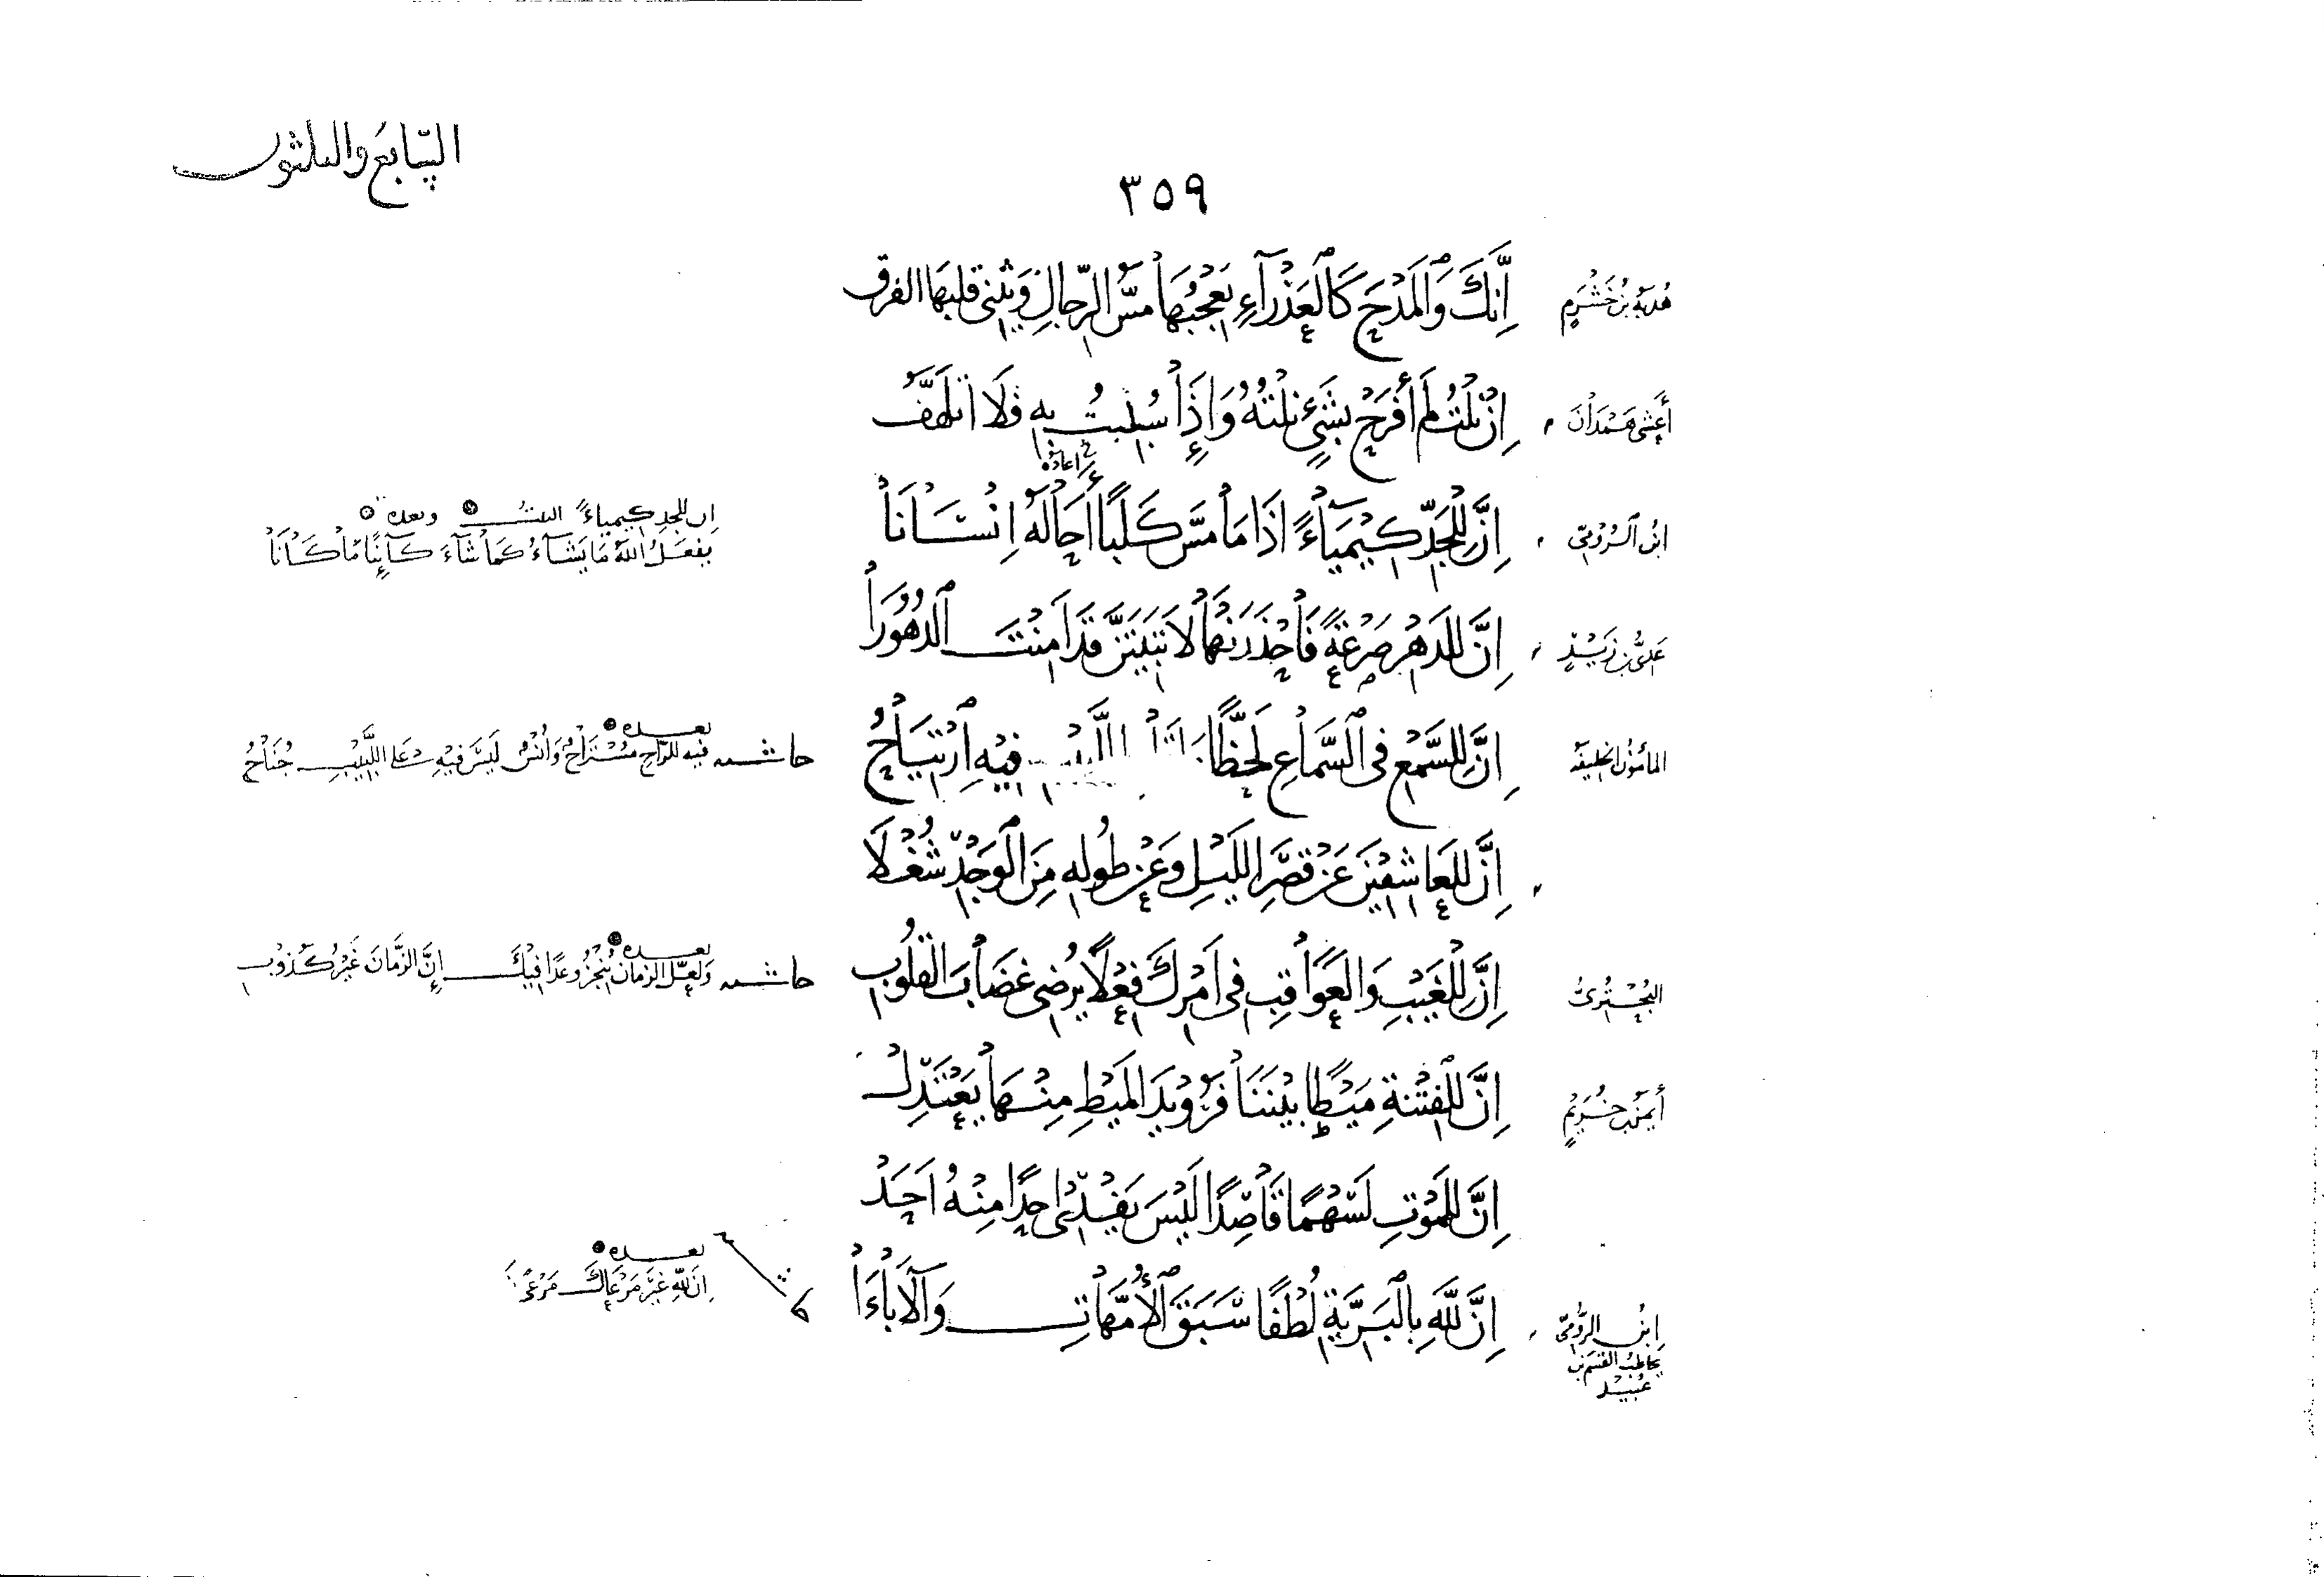 السابع والثلثون
٣٥٩
هدبة بن خشرم إِنَّكَ وَالْمَدْحَ كَالْعَذْرَاءِ يُعْجِبُهَا مَسُّ الرِّجَالِ وَيَثْنِي قَلْبَهَا الفَرَقُ
أَعْشَى هَمْدَانَ إِنْ نِلْتُ لَمْ أَفْرَحْ بِشَيْءٍ نِلْتُهُ وَإِذَا سُلِبْتُ بِهِ فَلَا أَتَلَهَّفُ
ابن الرومي إِنَّ لِلْجَدِّ كِيمِيَاءً إِذَا مَا مَسَّ كَلْبًا أَحَالَهُ إِنْسَانَا
أعاده
ان للجد كيمياءً البيت وبعده
يَفْعَلُ اللهُ مَا يَشَاءُ كَمَا شَاءَ كَائِنًا مَا كَانَا
عَدِيُّ بن زَيْدٍ إِنَّ لِلدَّهْرِ صَرْعَةً فَاحْذَرَنْهَا لَا تَبِيتَنَّ قَدْ أَمِنْتَ الدُّهُورَا
المأمون الخليفة إِنَّ لِلسَّمْعِ فِي السَّمَاعِ لَحَظًّا فِيهِ ارْتِيَاحُ
حاشية بعده
فيه للرّاح مُسْتَرَاحٌ وَأُنْسٌ لَيْسَ فِيهِ عَلَى اللَّبِيبِ جُنَاحُ
إِنَّ لِلْعَاشِقِينَ عَنْ قِصَرِ اللَّيْلِ وَعَنْ طُولِهِ مِنَ الْوَجْدِ شُغْلَا
البُحْتُرِيُّ إِنَّ لِلْغَيْبِ وَالْعَوَاقِبِ فِي أَمْرِكَ فِعْلًا يُرْضِي غِضَابَ الْقُلُوبِ
حاشية بعده
وَلَعَلَّ الزمان يُنْجِزُ وعدًا فِيكَ إِنَّ الزَّمَانَ غَيْرُ كَذُوبِ
أيمن بن خُرَيْمٍ إِنَّ لِلْفِتْنَةِ مَيْطًا بَيْنَنَا فَرُوَيْدَ الْمَيْطِ مِنْهَا يَعْتَدِلْ
إِنَّ لِلْمَوْتِ لَسَهْمًا قَاصِدًا لَيْسَ يَفْدِي أَحَدًا مِنْهُ أَحَدْ
ابن الرومي يخاطب القسم بن عبيد إِنَّ لِلَّهِ بِالْبَرِيَّةِ لُطْفًا سَبَقَ الْأُمَّهَاتِ وَالْآبَاءَا
بعده
إِنَّ لِلهِ غَيْرَ مَرْعَاكَ مَرْعًى